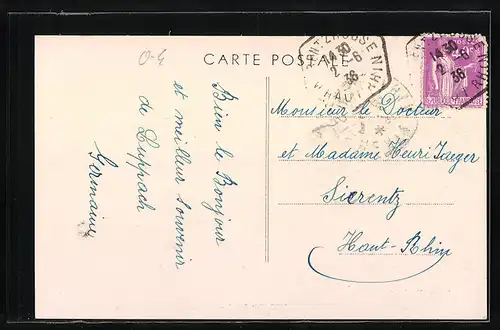 O-4
CARTE POSTALE
14 30
2 - 6
36
14 30
2 - 6
36
Bien le Bonjour
et meilleur souvenir
de Luppach
Germaine
Monsieur le Docteur
et Madame Henri Jaeger
Sierentz
Haut-Rhin